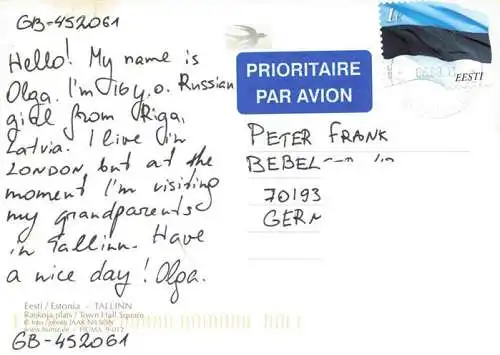 GB-452061
Hello! My name is
Olga. I'm 16 y.o. Russian
girl from Riga,
Latvia. I live in
LONDON, but at the
moment I'm visiting
my grandparents
in Tallinn. Have
a nice day! Olga.
Eesti / Estonia - TALLINN
Raekoja plats / Town Hall Square
GB-452061
PRIORITAIRE
PAR AVION
EESTI
PETER FRANK
70193